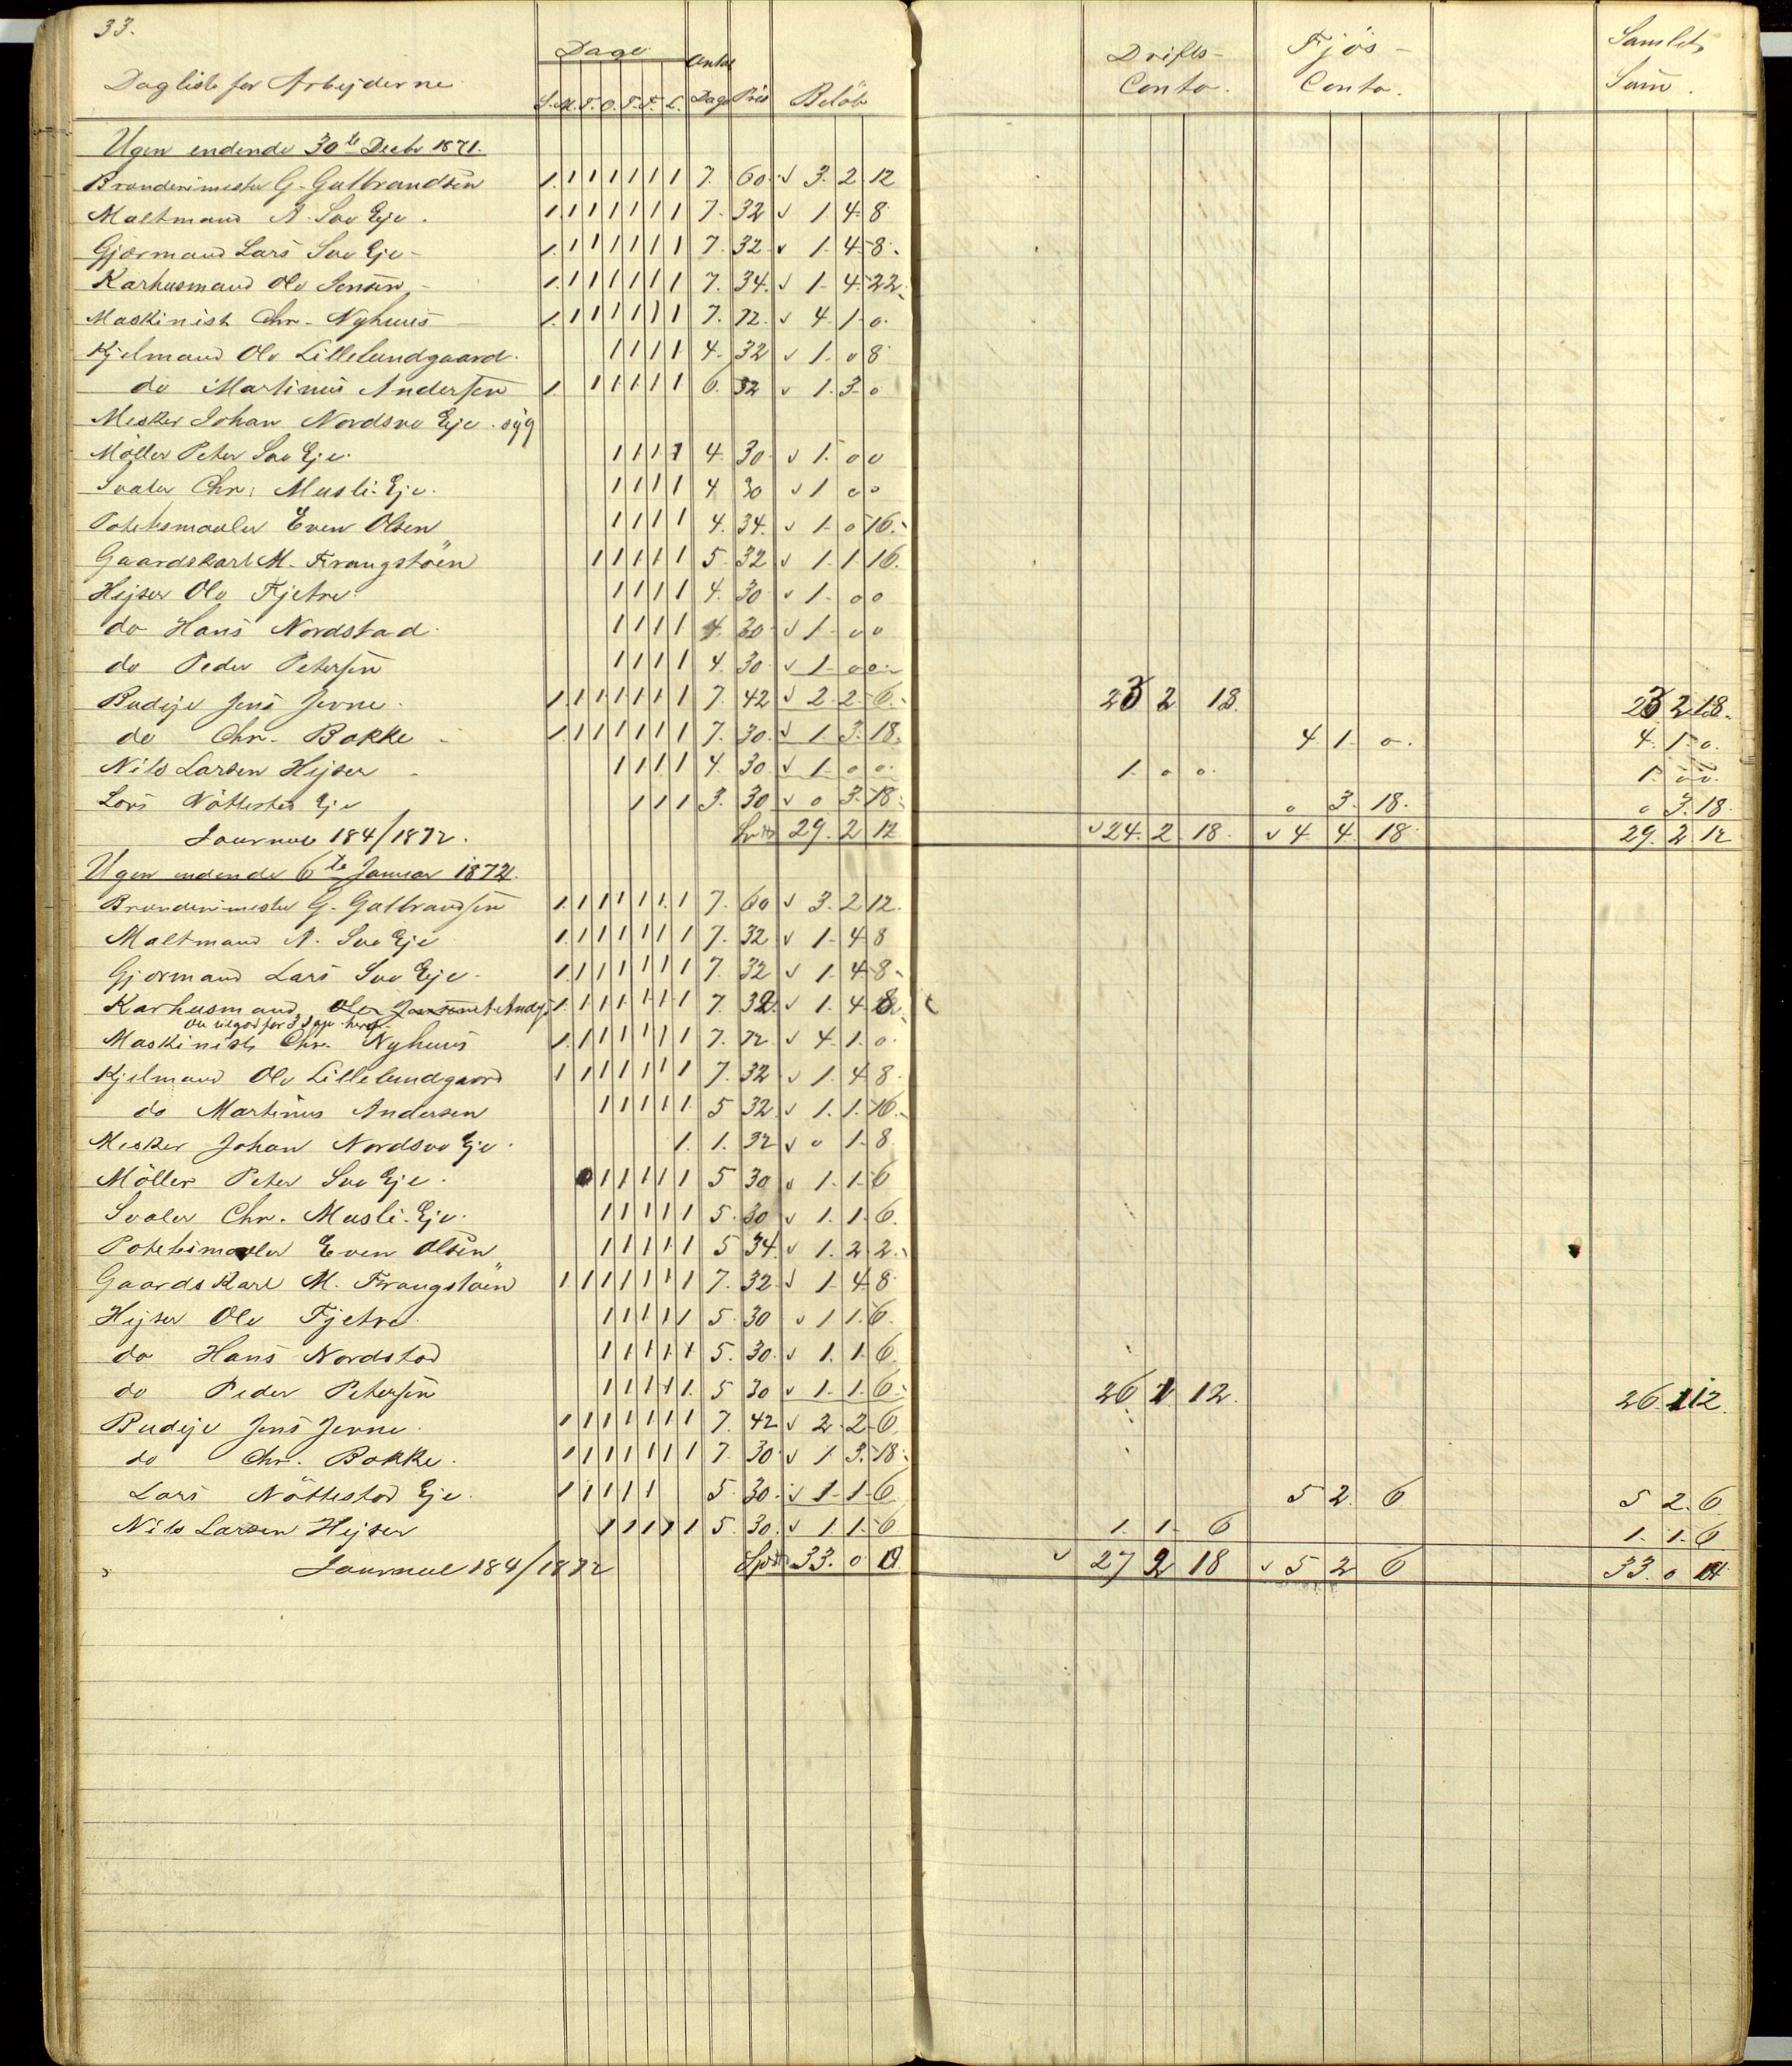 33.
Dage Antal Drifts- Fjös- Samlet
Dagliste for Arbejderne S. M. T. O. T. F. L. Dage Pris Belöb Conto. Conto. Sum.
Ugen endende 30te Decbr 1871.
Brænderimester G. Gulbrandsen 1. 1 1 1 1 1 1 7. 60. 3. 2 12
Maltmand A. Soe Eje. 1 1 1 1 1 1 1 7. 32 1. 4. 8
Gjærmand Lars Soe Eje - 1. 1 1 1 1 1 1 7. 32 1. 4. 8.
Karhusmand Ole Jensen, - 1. 1 1 1 1 1 1 7. 34. 1. 4. 22.
Maskinist Chr. Nyhuus - 1. 1 1 1 1 1 1 7. 72. 4. 1. 0.
Kjelmand Ole Lillelundgaard. 1 1 1 1 4. 32 1. 0 8
do Martinus Andersen 1. 1 1 1 1 1 6. 32 1. 3. 0
Mesker Johan Nordsve Eje. syg
Möller Peter Soe Eje. 1 1 1 1 4. 30 1. 0 0
Svaler Chr. Musli. Eje. 1 1 1 1 4 30 1 0 0
Potetesmaaler Even Olsen 1 1 1 1 4. 34. 1. 0 16.
Gaardskarl M. Frangstöen 1 1 1 1 1 5 32 1. 1. 16.
Hejser Ole Fjetre. 1 1 1 1 4. 30 1. 0 0
do Hans Nordstad. 1 1 1 1 4 30 1 0 0
do Peder Petersen 1 1 1 1 4. 30 1 0 0
Budeje Jens Jevne. 1. 1 1 1 1 1 1 7. 42 2. 2. 6. 23 2 18. 23 2 18.
do Chr. Bakke - 1. 1 1 1 1 1 1 7. 30. 1 3. 18. 4. 1. 0. 4. 1. 0.
Nils Larsen Hejser - 1 1 1 1 4. 30 1. 0 0. 1. 0 0. 1. 0 0.
Lars Nöttestad Eje 1 1 1 3. 30 0 3. 18. 0 3. 18. 0 3. 18.
Journal 184/1872. 29. 2 12 24. 2 18. 4. 4. 18 29. 2. 12
Ugen endende 6te Januar 1872.
Brænderimester G. Gulbrandsen 1. 1 1 1 1 1. 1 7. 60 3. 2 12.
Maltmand A. Soe Eje 1. 1 1 1 1 1 1 7. 32 1. 4. 8
Gjærmand Lars Soe Eje - 1. 1 1 1 1 1 1 7. 32 1. 4. 8.
Karhusmand Ole Jensen 1. 1 1 1 1 1 1 7. 32. 1. 4. 8
Maskinist Chr. Nyhuus 1. 1 1 1 1 1 1 7. 72 4. 1. 0.
Kjelmand Ole Lillelundgaard 1 1 1 1 1 1 1 7. 32 1. 4. 8.
do Martinus Andersen 1 1 1 1 1. 5 32 1. 1. 16.
Mesker Johan Nordsve Eje. 1. 1. 32 0 1. 8
Möller Peter Soe Eje. 1 1 1 1 1 5 30 1. 1. 6
Svaler Chr. Musli. Eje. 1 1 1 1 1 5. 30 1. 1. 6.
Potetesmaaler Even Olsen 1 1 1 1 1 5 34. 1. 2 2.
Gaardskarl M. Frangstöen 1. 1 1 1 1 1 1 7. 32. 1. 4. 8
Hejser Ole Fjetre. 1 1 1 1 1 5. 30 1 1. 6.
do Hans Nordstad 1 1 1 1 1 5. 30. 1. 1. 6.
do Peder Petersen 1 1 1 1 1. 5 30 1. 1. 6. 26 1 12. 26. 1 12.
Budeje Jens Jevne. 1 1 1 1 1 1 1 7. 42 2. 2. 6.
do Chr. Bakke. 1 1 1 1 1 1 1 7. 30. 1 3. 18.
Lars Nöttestad Eje. 1 1 1 1 1 5. 30. 1. 1. 6 5 2. 6 5 2. 6
Nils Larsen Hejser 1 1 1 1 1 5. 30. 1. 1. 6 1. 1. 6 1. 1. 6
Journal 184/1872 33. 0 27 2 18 5 2 6 33. 0